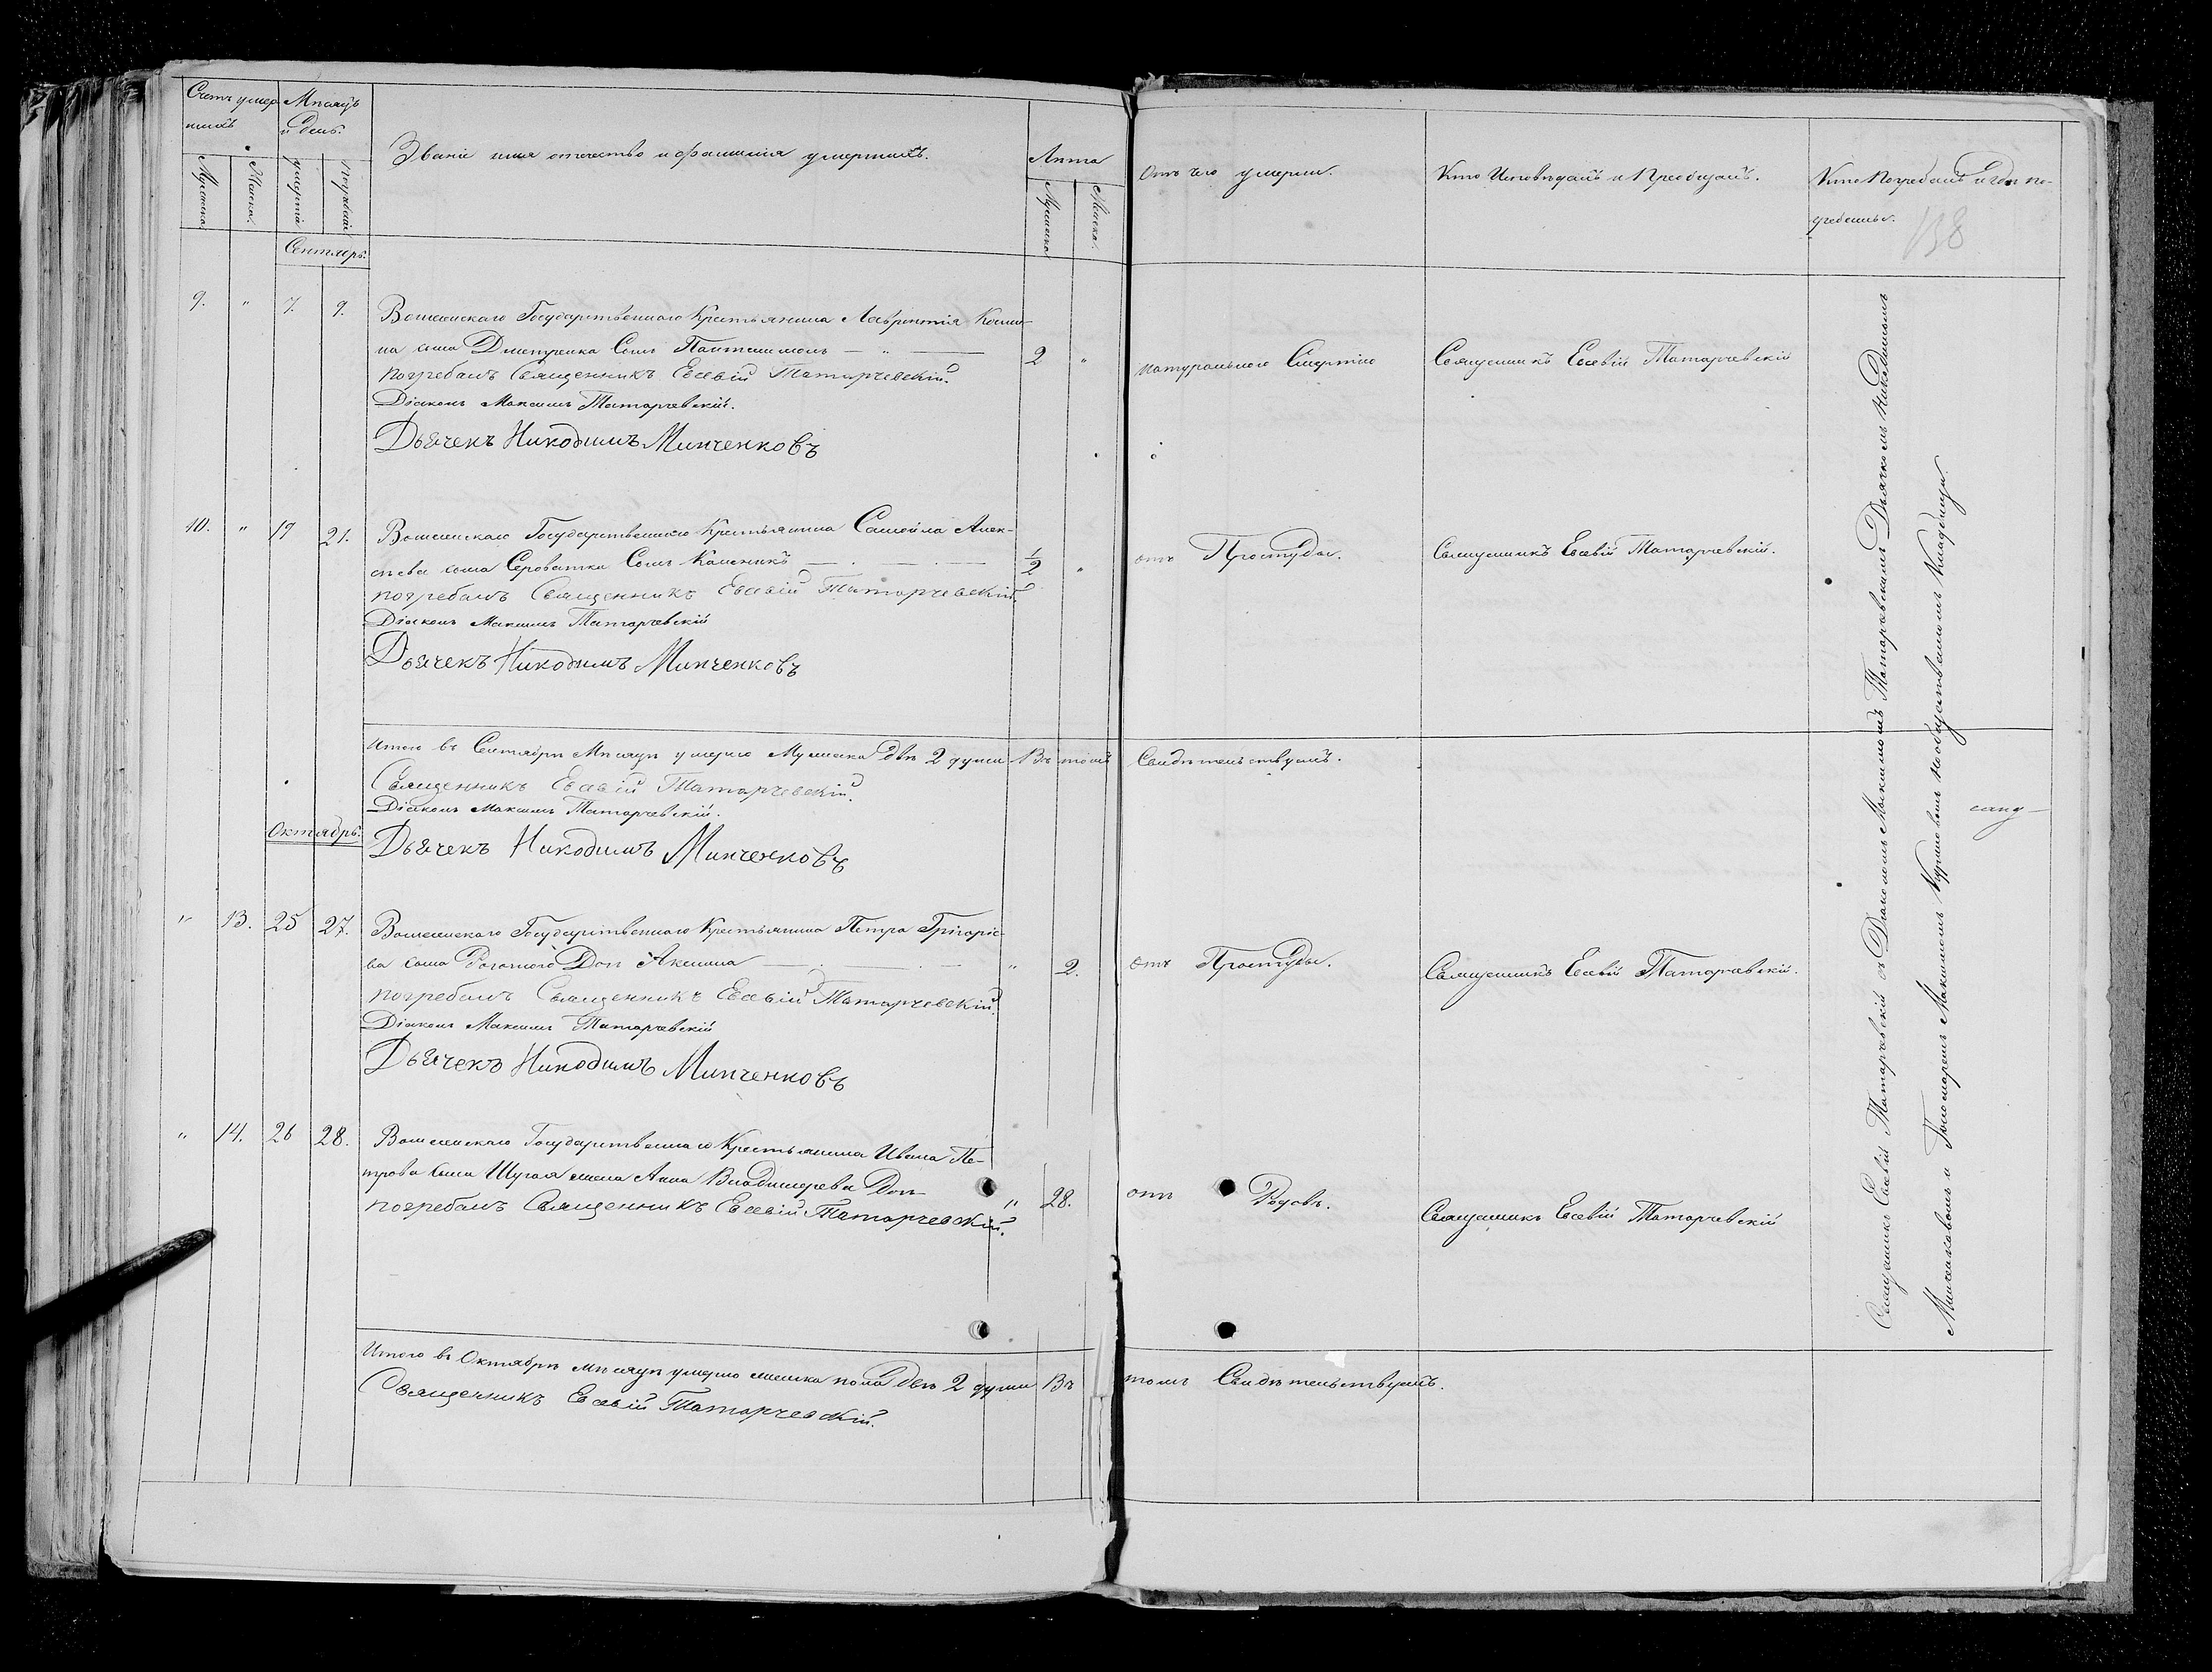 Счетъ умер
шихъ
Мѣсяцъ
и День.
Мужеска.
Женска.
умертія
Погребенія
Званіе имя отечество и фамилія умершихъ.
Лѣта
Мужеска.
Женска.
Отъ чего умерли.
Кто Исповѣдалъ и Пріобщалъ.
Кто Погребалъ и гдѣ по-
гребены.
138
Сентябрь.
9. " 7. 9. Государственнаго Крестьянина Лаврентія
на сына Дмитренка Сынъ Пантелимонъ — " — 2 " натуральною Смертію Священникъ Евсевій Татарчевскій
погребалъ Священникъ Евсевій Татарчевскій.
Діаконъ Максимъ Татарчевскій.
Дьячекъ Никодимъ Минченковъ
10. " 19 21. Государственнаго Крестьянина Самойла Алек-
сѣева сына Сероватки Сынъ Каленикъ 1/2 " отъ Простуды. Священникъ Евсевій Татарчевскій.
погребалъ Священникъ Евсевій Татарчевскій.
Діаконъ Максимъ Татарчевскій
Дьячекъ Никодимъ Минченковъ
Итого въ Сентябрѣ Мѣсяцѣ умерло Мужеска двѣ 2 души Въ томъ Свидѣтельствуемъ.
Священникъ Евсевій Татарчевскій.
Діаконъ Максимъ Татарчевскій.
Дьячекъ Никодимъ Минченковъ
Октябрь.
" 13. 25 27. Государственнаго Крестьянина Петра Григорiе-
ва сына Дочь Аксинія " 2. отъ Простуды. Священникъ Евсевій Татарчевскій.
погребалъ Священникъ Евсевій Татарчевскій.
Діаконъ Максимъ Татарчевскій
Дьячекъ Никодимъ Минченковъ
" 14. 26 28. Государственнаго Крестьянина Ивана Пе-
трова сына Шугая жена Анна Дочь " 28. отъ Родовъ. Священникъ Евсевій Татарчевскій
погребалъ Священникъ Евсевій Татарчевскій.
Итого въ Октябрѣ мѣсяцѣ умерло женска пола двѣ 2 души Въ томъ Свидѣтельствуемъ.
Священникъ Евсевій Татарчевскій.
Священникъ Евсевій Татарчевскій съ Діакономъ Максимомъ Татарчевскимъ Дьячкомъ Никодимомъ
Минченковомъ и Пономаремъ Максимомъ на общественномъ Кладбищи.